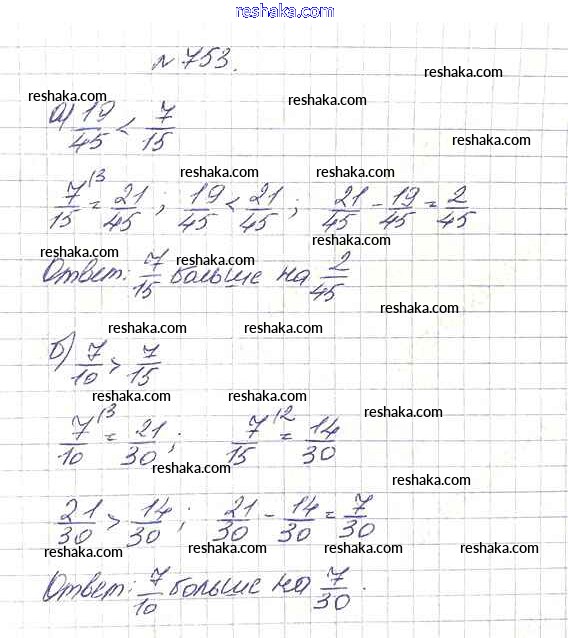 reshaka.com
№ 753.
reshaka.com
reshaka.com
а) 19/45 < 7/15
reshaka.com
reshaka.com reshaka.com
7/15 ^(3 = 21/45; 19/45 < 21/45; 21/45 - 19/45 = 2/45
reshaka.com
reshaka.com reshaka.com
Ответ: 7/15 больше на 2/45
reshaka.com
reshaka.com reshaka.com
б) 7/10 > 7/15
reshaka.com reshaka.com
reshaka.com
7/10 ^(3 = 21/30; 7/15 ^(2 = 14/30
reshaka.com
reshaka.com
21/30 > 14/30; 21/30 - 14/30 = 7/30
reshaka.com reshaka.com reshaka.com reshaka.com
Ответ: 7/10 больше на 7/30.
reshaka.com reshaka.com